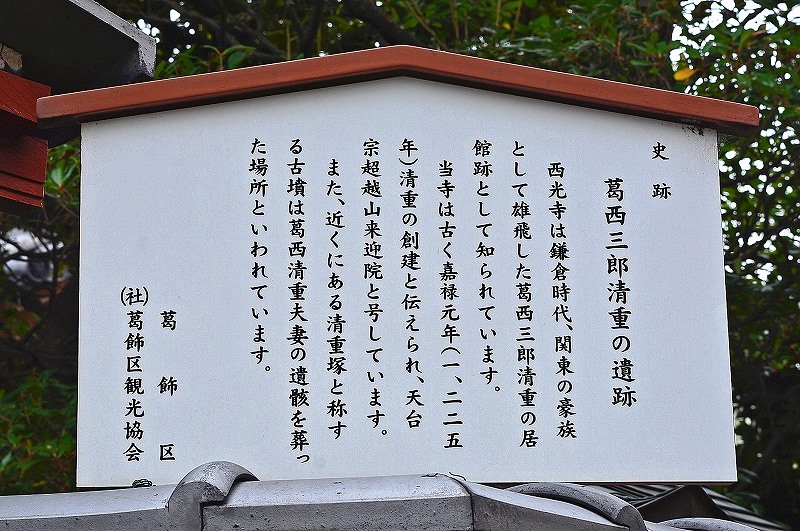 史跡
葛西三郎清重の遺跡
西光寺は鎌倉時代、関東の豪族
として雄飛した葛西三郎清重の居
館跡として知られています。
当寺は古く嘉禄元年(一、二二五
年)清重の創建と伝えられ、天台
宗超越山来迎院と号しています。
また、近くにある清重塚と称す
る古墳は葛西清重夫妻の遺骸を葬っ
た場所といわれています。
葛飾区
(社)葛飾区観光協会